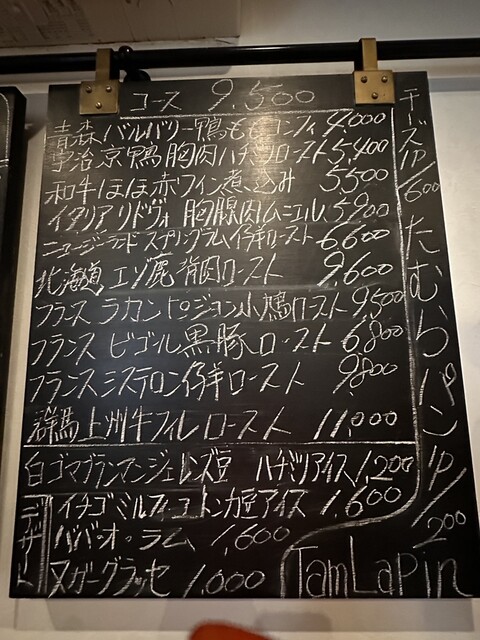 コース 9,500
青森バルバリー鴨ももコンフィ 4,000
宇治京鴨胸肉ハチミツロースト 5,400
和牛ほほ赤ワイン煮込み 5,500
イタリアリドヴォ胸腺肉ムニエル 5,900
ニュージーランドスプリングラム仔羊ロースト 6,600
北海道エゾ鹿背肉ロースト 9,600
フランスラカンピジョン小鳩ロースト 9,500
フランスビゴール黒豚ロースト 6,800
フランスミステロン仔羊ロースト 9,800
群馬上州牛フィレロースト 11,000
白ゴマブランマンジェレンズ豆 ハチミツアイス 1,200
デザート
イチゴミルフィーユトンカ豆アイス 1,600
ババ・オ・ラム 1,600
ヌガーグラッセ 1,000
チーズ1P/600
たむらパン1P/200
TamLapin